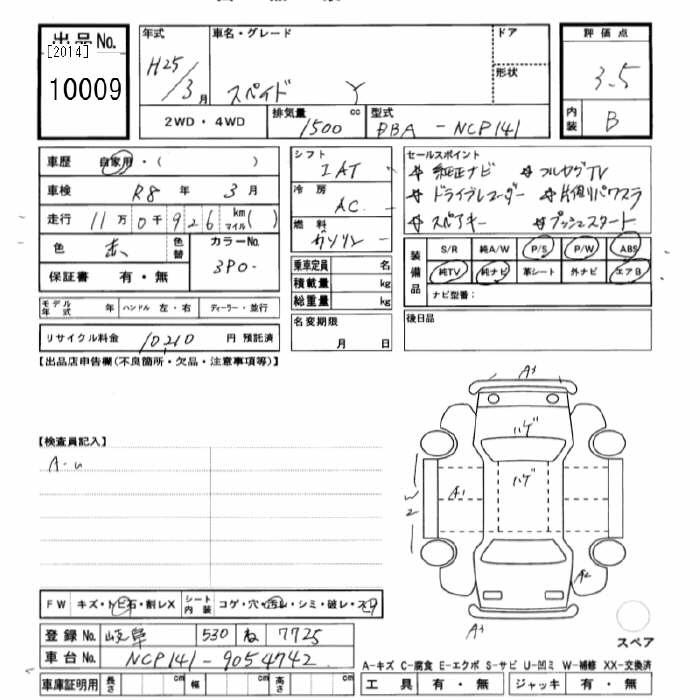 出品No.
[2014]
10009
年式
H25/3月
車名・グレード
スペイド Y
ドア
形状
2WD・4WD
排気量 1500 cc
型式 DBA-NCP141
評価点
3.5
内装 B
車歴 自家用・( )
車検 R8年 3月
走行 11万0千926 km マイル( )
色 赤 色替
カラーNo. 3P0-
保証書 有・無
モデル年式 年 ハンドル 左・右 ディーラー・並行
リサイクル料金 10,210 円 預託済
シフト IAT
冷房 AC
燃料 ガソリン
乗車定員 名
積載量 kg
総重量 kg
名変期限
月 日
セールスポイント
純正ナビ フルセグTV
ドライブレコーダー 片側パワスラ
スペアキー プッシュスタート
装備品 S/R 純A/W P/S P/W ABS
純TV 純ナビ 革シート 外ナビ エアB
ナビ型番:
後日品
【出品店申告欄(不良箇所・欠品・注意事項等)】
【検査員記入】
A-u
A3
ハゲ
ハゲ
W2
A1
A2
A3
スペア
FW キズ・トビ石・割レX シート内装 コゲ・穴・汚レ・シミ・破レ・スリ
登録No. 岐阜 530 ね 7725
車台No. NCP141-9054742
車庫証明用 長さ cm 幅 cm 高さ cm
A-キズ C-腐食 E-エクボ S-サビ U-凹ミ W-補修 XX-交換済
工具 有・無 ジャッキ 有・無